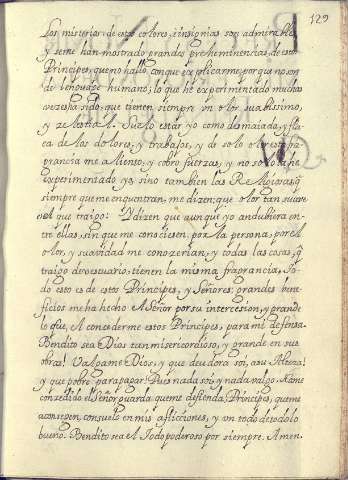 129
Los misterios de estos colores, e insignias son admirables
y seme han mostrado grandes preheminenzias de estos
Principes, que no hallo con que explicarme, por que no son
de lenguage humano; lo que he experimentado muchas
vezes ha sido, que tienen siempre un olor suabissimo,
y zelestial. Suelo estar yo como desmaiada, y fla
ca de los dolores, y trabajos, y de solo oler esta fra
grancia me aliento, y cobro fuerzas, y no solo la he
experimentado yo, sino tambien las Religiosas, q̃
siempre que me encuentran, me dizen: que olor tan suave
es el que traigo: Y dizen que aunque yo andubiera en
tre ellas, sin que me conociesen por la persona, por el
olor, y suavidad me conozerian, y todas las cosas, q̃
traigo de vestuario, tienen la misma fragrancia, To
do esto es de estos Principes, y Señores: grandes bene
ficios me ha hecho el Señor por su intercesion, y grande
lo fue, el concederme estos Principes, para mi defensa.
Bendito sea Dios tan misericordioso, y grande en sus
obras! Valgame Dios, y que deudora soi, a su Alteza!
y que pobre para pagar! Pues nada soi, y nada valgo. Hame
conzedido el Señor guarda que me defienda, Principes, que me
aconsejen, consuelo en mis aflicciones, y un todo de todo lo
bueno. Bendito sea el Todo poderoso por siempre. Amen.